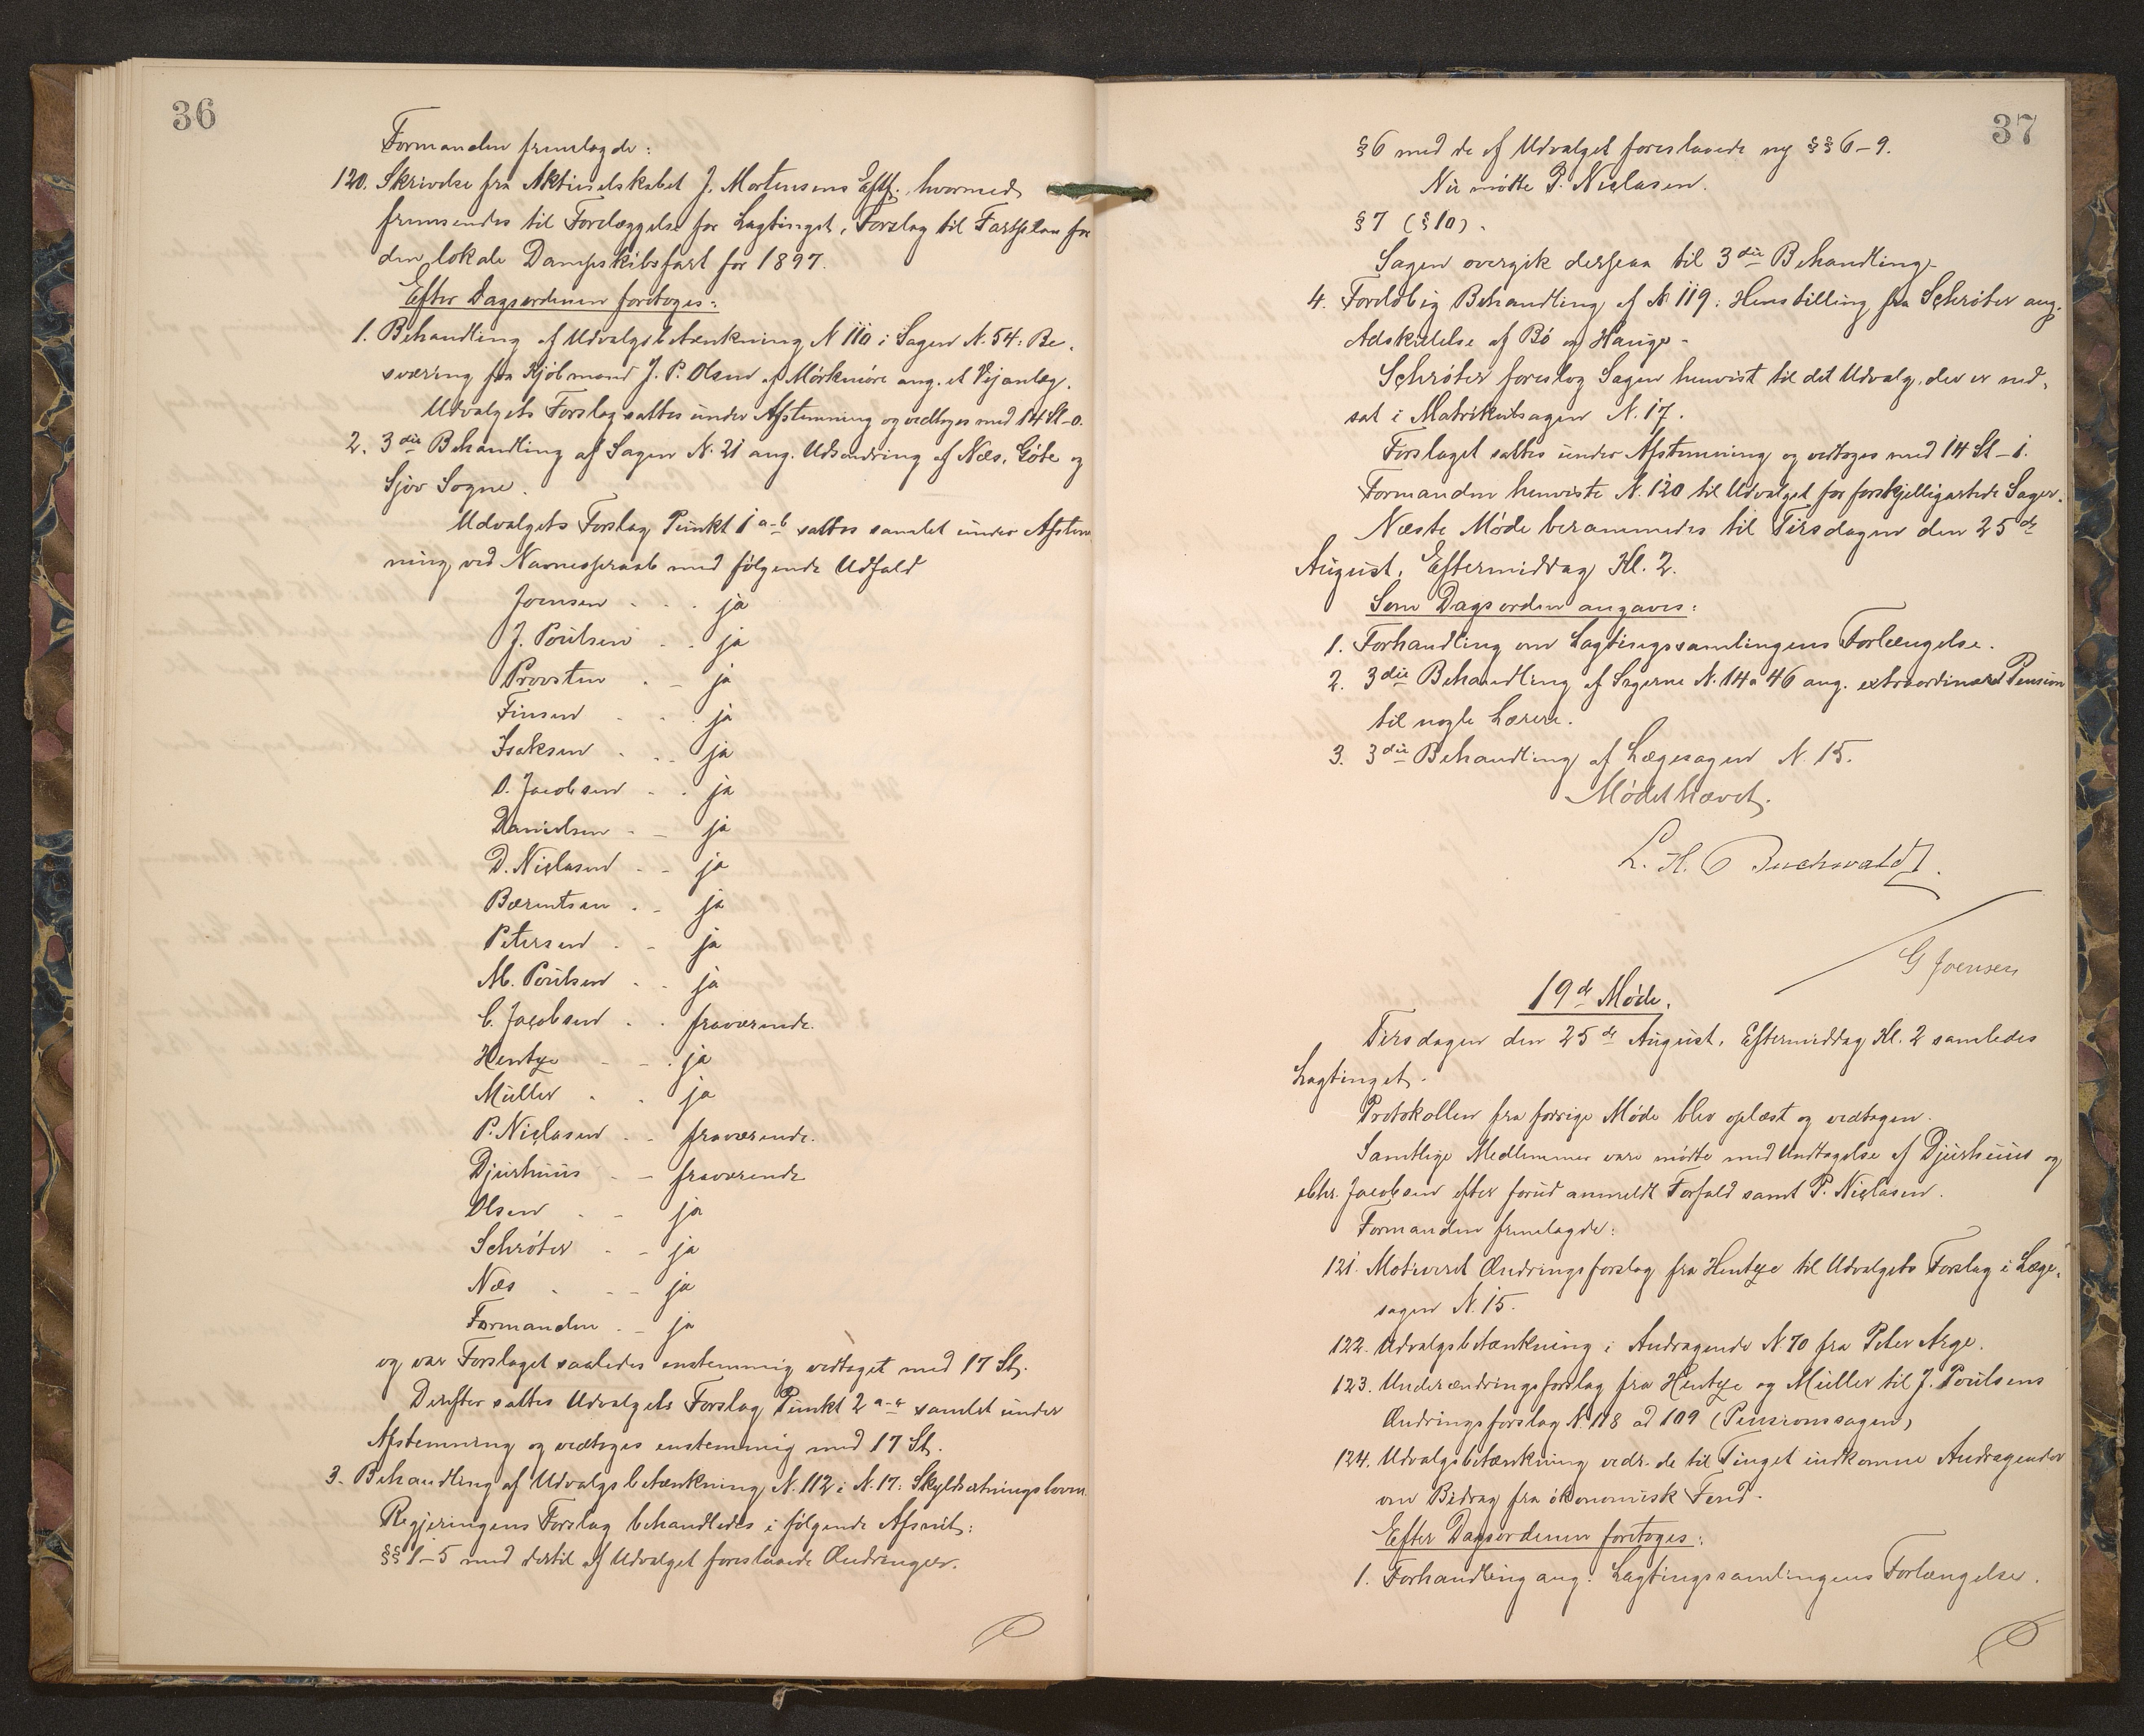 36
Formanden fremlagde:
120. Skrivelse fra Aktieselskabet J. Mortensens Eftf. hvormed
fremsendes til Forelæggelse for Lagtinget, Forslag til Fartplan for
den lokale Dampskibsfart for 1897.
Efter Dagsordenen foretoges:
1. Behandling af Udvalgsbetænkning N 110 i Sagen N. 54: Be-
sværing fra Kjøbmand J. P. Olsen af ang. et Vejanlæg.
Udvalgets Forslag sattes under Afstemning og vedtoges med 14 St-0.
2. 3die Behandling af Sagen N. 21 ang. Udsondring af Næs, Gøte og
Sjov Sogne.
Udvalgets Forslag Punkt 1 a-b sattes samlet under Afstem
ning ved Navneopraab med følgende Udfald
Joensen - - ja
J. Poulsen - - ja
Provsten - - ja
Finsen - - ja
Isaksen - - ja
O. Jacobsen - - ja
Danielsen - - ja
D. Niclasen - - ja
Bærentsen - - ja
Petersen - - ja
M. Poulsen - - ja
C. Jacobsen - - fraværende.
Hentze - - ja
Müller - - ja
P. Niclasen - - fraværende.
Djurhuus - - fraværende
Olsen - - ja
Schrøter - - ja
Næs - - ja
Formanden - - ja
og var Forslaget saaledes enstemmig vedtaget med 17 St.
Derefter sattes Udvalgets Forslag Punkt 2 samlet under
Afstemning og vedtoges enstemmig med 17 St.
3. Behandling af Udvalgsbetænkning N. 112 i N. 17: Skyldsætningsloven
Regjeringens Forslag behandledes i følgende Afsnit:
§§ 1-5 med dertil af Udvalget foreslaaede Ændringer.
37
§6 med de af Udvalget foreslaaede ny §§6-9.
Nu mötte P. Niclasen.
§7 (§10).
Sagen overgik derpaa til 3die Behandling
4. Foreløbig Behandling af N 119: Henstilling fra Schrøter ang.
Adskillelse af Bø og Hauge-
Schrøter foreslog Sagen henvist til det Udvalg, der er ned-
sat i Matrikulsagen N. 17.
Forslaget sattes under Afstemning og vedtoges med 14 St-1.
Formanden henviste N. 120 til Udvalget for forskjelligartede Sager.
Næste Møde berammedes til Tirsdagen den 25de
August, Eftermiddag Kl. 2.
Som Dagsorden angaves:
1. Forhandling om Lagtingssamlingens Forlængelse.
2. 3die Behandling af Sagerne N. 14 a 46 ang. extraordinær Pension
til nogle Lærere.
3. 3die Behandling af Lægesagen N. 15.
Mødet hævet.
L. H. Buchwaldt.
G Joensen
19de Møde.
Tirsdagen den 25de August, Eftermiddag Kl. 2 samledes
Lagtinget.
Protokollen fra forrige Møde blev oplæst og vedtagen.
Samtlige Medlemmer vare mødte med Undtagelse af Djurhuus og
Chr. Jacobsen efter forud anmeldt Forfald samt P. Niclasen.
Formanden fremlagde:
121. Motiveret Ændringsforslag fra Hentze til Udvalgets Forslag i Læge-
sagen N. 15.
122. Udvalgsbetænkning i Andragende N. 70 fra Peter Arge.
123. Underændringsforslag fra Hentze og Müller til J. Poulsens
Ændringsforslag N 118 ad 109 (Pensionssagen)
124. Udvalgsbetænkning vedr. de til Tinget indkomne Andragender
om Bidrag fra økonomisk Fond.
Efter Dagsordenen foretoges:
1. Forhandling ang. Lagtingssamlingens Forlængelse.